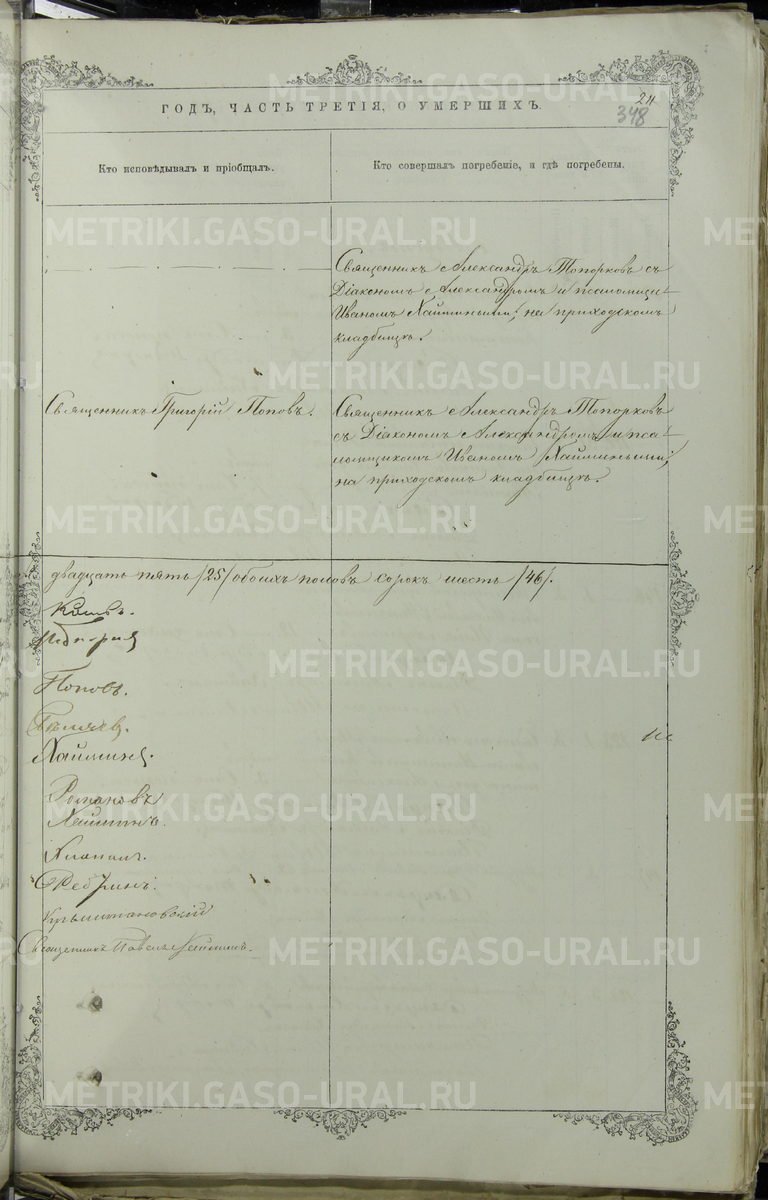 24
348
ГОДЪ, ЧАСТЬ ТРЕТІЯ, О УМЕРШИХЪ.
Кто исповѣдывалъ и пріобщалъ.
Кто совершалъ погребеніе, и гдѣ погребены.
Священникъ Александръ Топорковъ съ
Діакономъ Александромъ и псаломщи-
Иваномъ Хаймиными, на приходскомъ
кладбищѣ.
Священникъ Григорій Поповъ.
Священникъ Александръ Топорковъ
съ Діакономъ Александромъ и пса-
ломщикомъ Иваномъ Хаймиными,
на приходскомъ кладбищѣ.
двадцать пять /25/ обоихъ половъ сорокъ шесть /46/.
Поповъ.
Романовъ
Хайминъ.
Крыжановскій
Священникъ Павелъ Хайминъ.
METRIKI.GASO-URAL.RU